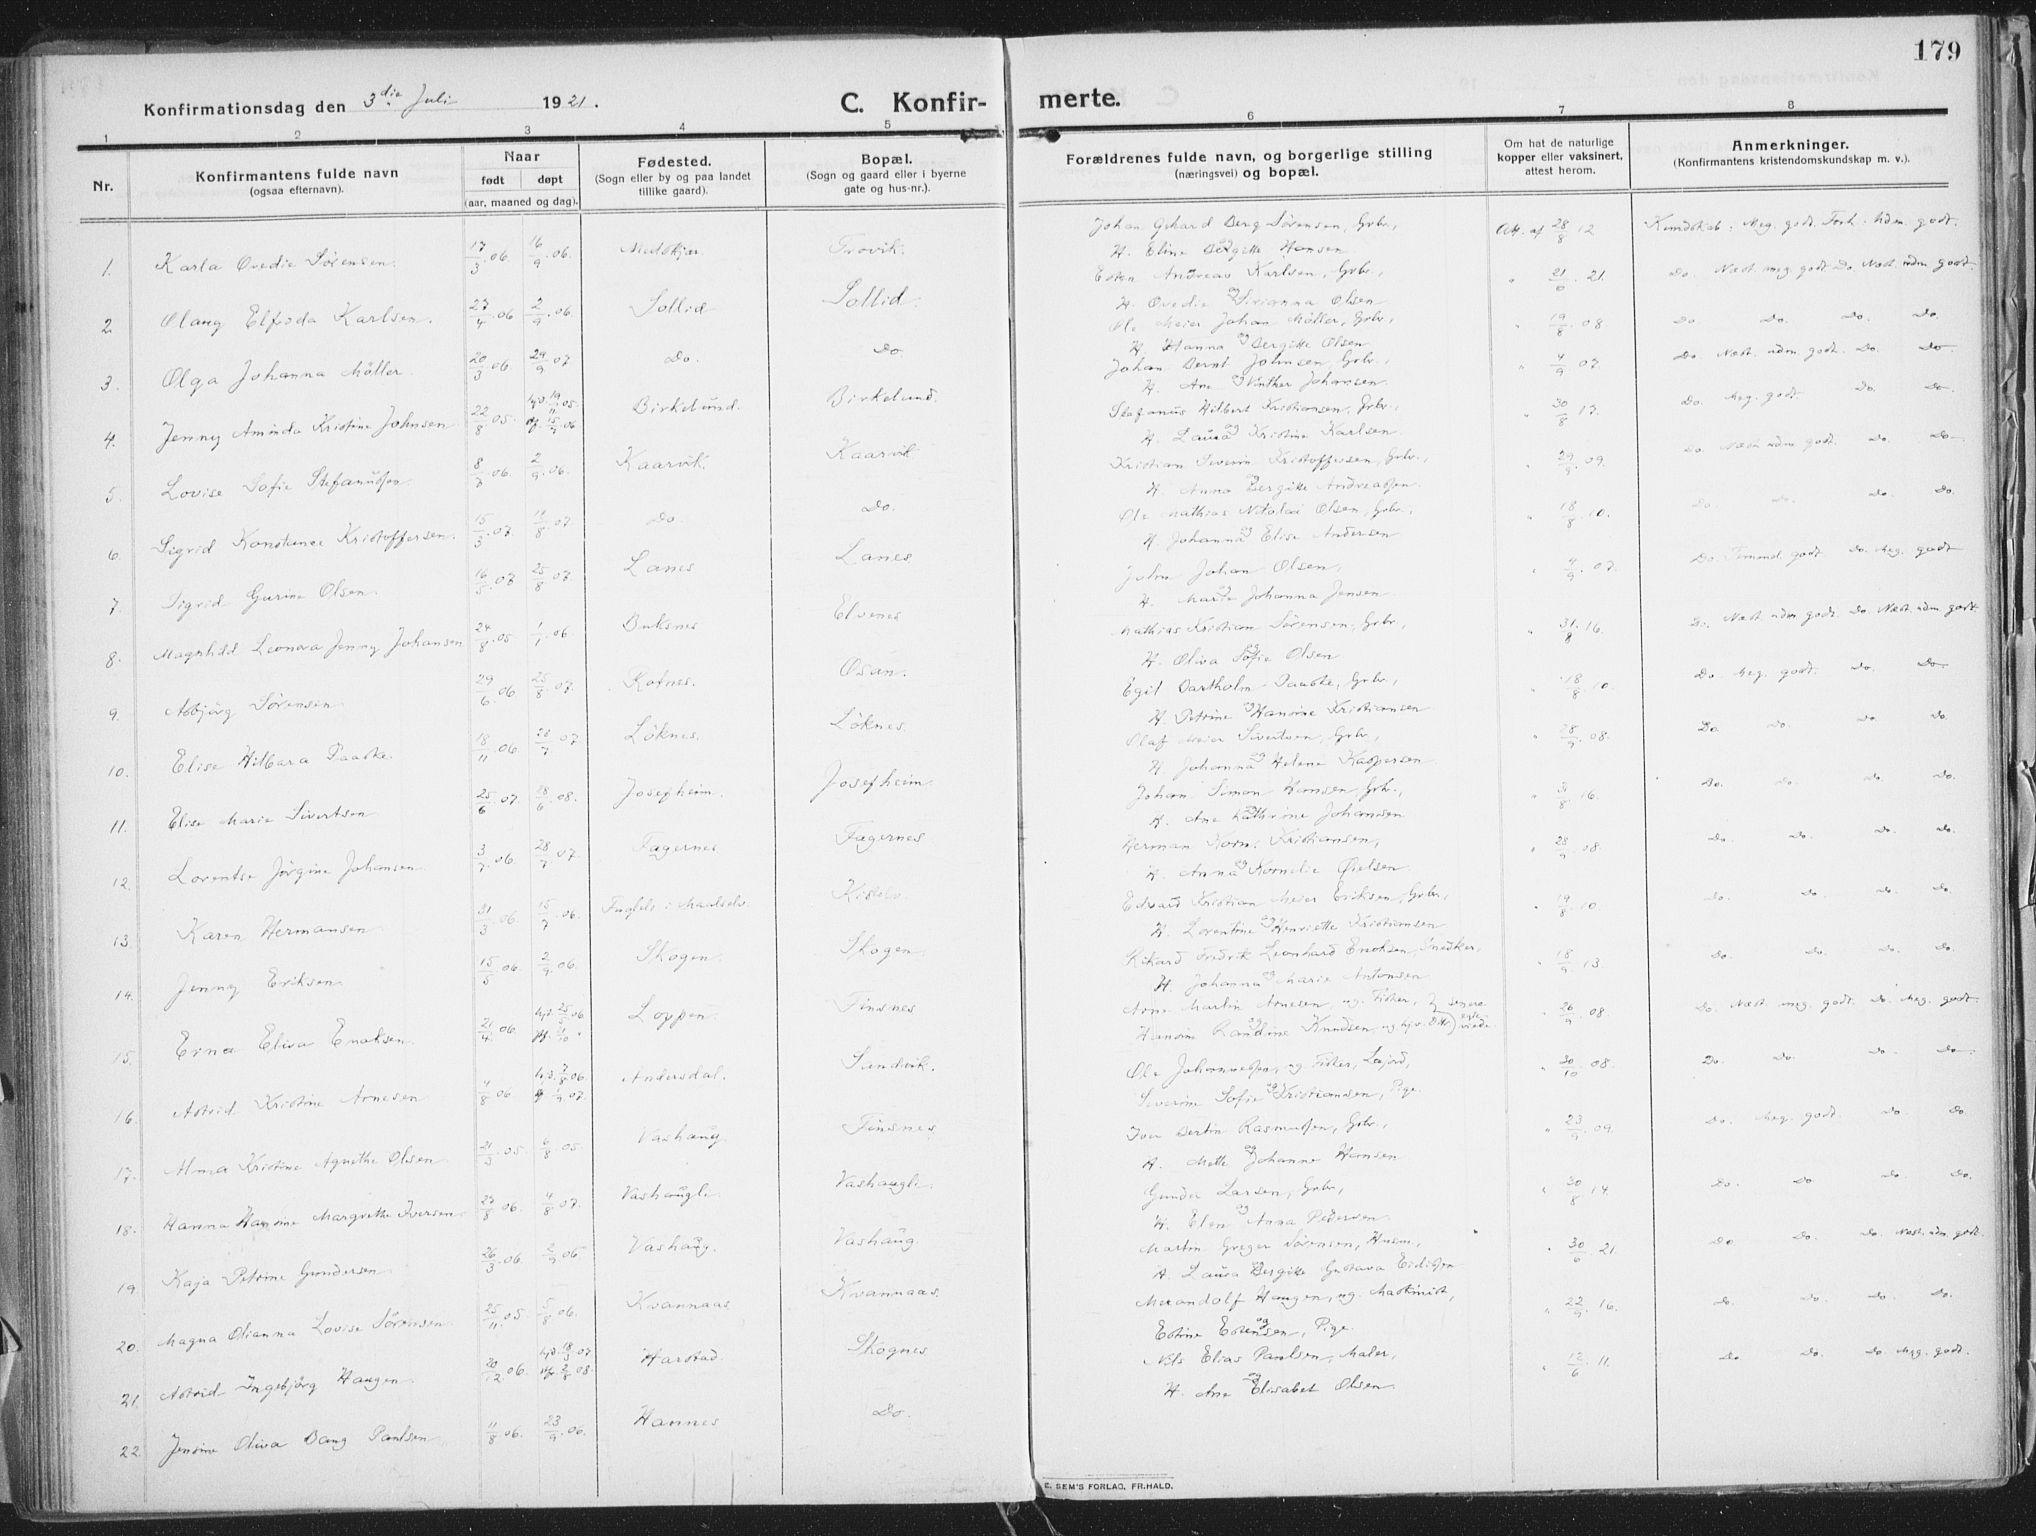 179
Konfirmationsdag den 3die Juli 1921.
C. Konfir-
merte.
1 2 3 4 5 6 7 8
Nr.
Konfirmantens fulde navn
(ogsaa efternavn).
Naar
født døpt
(aar, maaned og dag).
Fødested.
(Sogn eller by og paa landet
tillike gaard).
Bopæl.
(Sogn og gaard eller i byerne
gate og hus-nr.).
Forældrenes fulde navn, og borgerlige stilling
(næringsvei) og bopæl.
Om hat de naturlige
kopper eller vaksinert,
attest herom.
Anmerkninger.
(Konfirmantens kristendomskundskap m. v.).
1. Karla Ovedie Sørensen. 17/3.06 16/9.06. Trovik.
2. Olaug Elfrida Karlsen. 27/4.06 2/9.06 Sollid Sollid.
3. Olga Johanna Möller. 20/3.06 29/9.07 Do. Do.
4. Jenny Aminda Kristine Johnsen 22/8.05 Birkelund. Birkelund.
5. Lovise Sofie Stefanussen 8/7.06 2/9.06. Kaarvik. Kaarvik
6. Sigrid Konstance Kristoffersen. 15/3.07 Do. Do.
7. Sigrid Gurine Olsen. 16/5.07 25/8.07 Lanes Lanes
8. Magnhild Leonora Jenny Johansen 24/8.05 1/1.06. Buksnes Elvenes
9. Asbjörg Sörensen 29/6.06 25/8.07. Rotnes. Osan.
10. Elise Hilbara Paaske. 18/11.06 28/7.07 Löknes. Löknes.
11. Elise Marie Sivertsen 25/6.07. 28/6.08. Josefheim. Josefheim.
12. Lorentse Jørgine Johansen 3/7.06. 28/7.07. Fagernes Fagernes
13. Karen Hermansen 21/3.06. 15/7.06. Fuglelv i Maalselv. Kistelv.
14. Jenny Eriksen. 15/5.06. 2/9.06. Skogen. Skogen.
15. Erna Eliva Enoksen. 21/4.06. Loppen. Finsnes
16. Astrid Kristine Arnesen 4/8.06. Andersdal. Sandvik.
17. Alma Kristine Agnethe Olsen 21/3.05. 6/8.05. Vashaug. Finsnes
18. Hanna Hansine Margrethe Iversen. 27/8.06. 4/8.07. Vashaugli. Vashaugli.
19. Kaja Petrine Gundersen 26/3.06. 2/9.06 Vashaug. Vashaug.
20. Magna Olianna Lovise Sørensen 25/11.05 5/8.06. Kvannaas Kvannaas.
21. Astrid Ingebjörg Haugen. 20/12.06. Harstad. Skognes
22. Jensine Oliva Bang Paulsen 11/8.06. 23/9.06. Hannes Do.
Johan Gehard Berg Sørensen, Grbr., Att. af 28/8 12 Kundskab: Meg. godt. Forh. Udm. godt.
H. Eline Bergitte Hansen
Esten Andreas Karlsen, Grbr., " 21/6. 21. Do. Næst meg. godt Do. Næst udm. godt.
H. Ovedie og Sivianna Olsen
Ole Meier Johan Möller, Grbr., " 19/8.08 Do Do. Do. Do.
H. Hanna og Bergitte Olsen
Johan Bernt Johnsen, Grbr., " 4/9 07. Do. Næst. udm. godt. Do. Do.
H. Ane og Vinther Johansen.
Stefanus Hilbert Kristiansen, Grbr., " 30/8 17. Do. Meg. godt. Do. Do.
H. Laura og Kristine Karlsen.
Kristian Severin Kristoffersen, Grbr., Do. Næst udm. godt. Do. Do.
H. Anna og Bergitte Andreassen.
Ole Mathias Nikolai Olsen, Grbr., " 18/8.10. Do Do. Do. Do.
H. Johanna og Elise Andersen
John Johan Olsen, " 4/9.07. Do. Temmel. godt. Do. Meg. godt
H. Marie og Johanna Jensen
Mathias Kristian Sørensen, Grbr., " 31/8.16. Do. Næst udm godt. Do Næst. udm godt.
H. Oliva og Sofie Olsen
Egil Bartholm Paaske, Grbr., " 18/8.10. Do. Meg. godt. Do. Do.
H. Petrine og Hansine Kristiansen
Olaf Meier Sivertsen, Grbr., " 28/9.08. Do. Do. Do. Do.
H. Johanna og Helene Kaspersen
Johan Simon Hansen, Grbr., " 31/8.16. Do. Do. Do. Do.
H. Ane og Kathrine Johansen
Herman Korn. Kristiansen, " 28/9.08. Do. Do. Do. Do.
H. Anna og Kornelie Øielsen
Edvard Kristian Meier Eriksen, Grbr., " 19/8.10. Do. Do. Do. Do.
H. Lorentine og Henriette Kristiansen
Rikard Fredrik Leonhard Enoksen, Snedker, " 18/9.13. Do. Do. Do. Do.
H. Johanna og Marie Antonsen
Arne Martin Arnesen, ug. Fisker, senere " 26/9.08. Do. Næst. meg. godt. Do. Meg. godt.
Hansine og Randine Knudsen, ug.
Ole Johannessen, ug. Fisker, " 30/10.08. Do. Do. Do. Do.
Severine Sofie og Kristiansen, Pige.
Iver Bertin Rasmussen, Grbr., " 23/9.09. Do. Meg. godt. Do. Do.
H. Mette og Johanne Hansen
Gunder Larsen, Grbr., " 30/8 14. Do. Do. Do. Do.
H. Elen og Anna Pedersen.
Martin Greger Sørensen, Husm., " 30/6 21. Do Do. Do. Næst. udm. godt.
H. Laura Bergitte Gustava Eidissen
Merandolf Haugen, ug. Maskinist, " 22/9.16. Do. Do. Do. Do.
Estine og Estensen, Pige.
Nils Elias Paulsen, Maler, " 12/6 11. Do. Do. Do. Meg. godt.
H. Ane og Elisabet Olsen.
E. SEM'S FORLAG, FR.HALD.